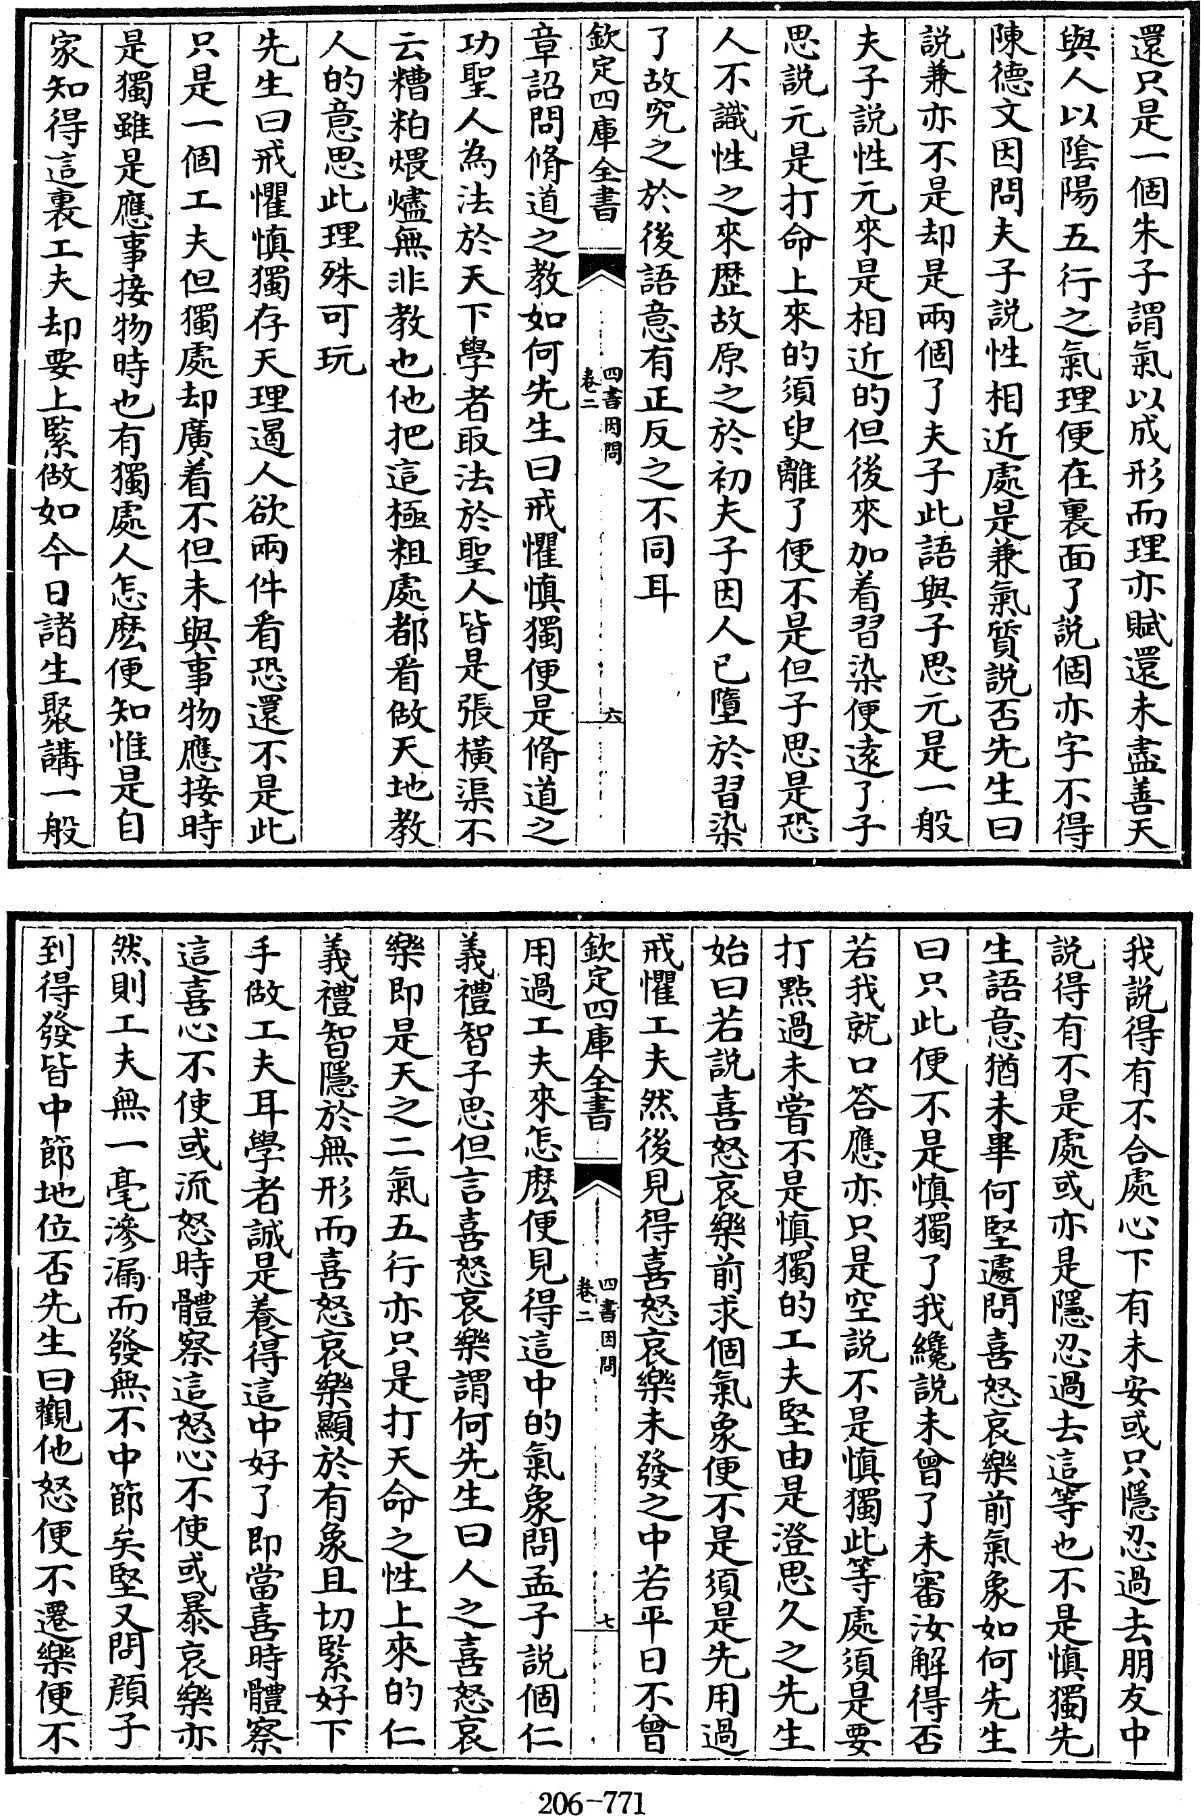 還只是一個朱子謂氣以成形而理亦賦還未盡善天
與人以陰陽五行之氣理便在裏面了説個亦字不得
陳德文因問夫子説性相近處是兼氣質説否先生曰
説兼亦不是却是兩個了夫子此語與子思元是一般
夫子説性元來是相近的但後來加着習染便遠了子
思説元是打命上來的須臾離了便不是但子思是恐
人不識性之來歴故原之於初夫子因人已墮於習染
了故究之於後語意有正反之不同耳
欽定四庫全書
四書因問
卷二
六
章詔問脩道之教如何先生曰戒懼慎獨便是脩道之
功聖人為法於天下學者取法於聖人皆是張横渠不
云糟粕煨燼無非教也他把這極粗處都看做天地教
人的意思此理殊可玩
先生曰戒懼慎獨存天理遏人欲兩件看恐還不是此
只是一個工夫但獨處却廣着不但未與事物應接時
是獨雖是應事接物時也有獨處人怎麽便知惟是自
家知得這裏工夫却要上緊做如今日諸生聚講一般
我説得有不合處心下有未安或只隱忍過去朋友中
説得有不是處或亦是隱忍過去這等也不是慎獨先
生語意猶未畢何堅遽問喜怒哀樂前氣象如何先生
曰只此便不是慎獨了我纔説未曾了未審汝解得否
若我就口答應亦只是空説不是慎獨此等處須是要
打點過未嘗不是慎獨的工夫堅由是澄思久之先生
始曰若説喜怒哀樂前求個氣象便不是須是先用過
戒懼工夫然後見得喜怒哀樂未發之中若平日不曾
欽定四庫全書
四書因問
卷二
七
用過工夫來怎麽便見得這中的氣象問孟子説個仁
義禮智子思但言喜怒哀樂謂何先生曰人之喜怒哀
樂即是天之二氣五行亦只是打天命之性上來的仁
義禮智隱於無形而喜怒哀樂顯於有象且切緊好下
手做工夫耳學者誠是養得這中好了即當喜時體察
這喜心不使或流怒時體察這怒心不使或暴哀樂亦
然則工夫無一毫滲漏而發無不中節矣堅又問顔子
到得發皆中節地位否先生曰觀他怒便不遷樂便不
206-771